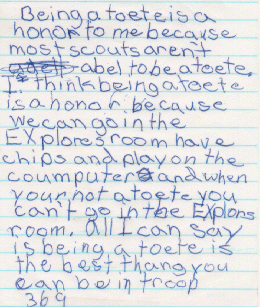 Being a toete is a
honor to me because
most scouts aren't
abel to be a toete.
I think being a toete
is a honor because
we can go in the
Explores room have
chips and play on the
coumputer and when
your not a toete you
can't go in the Explors
room. All I can say
is being a toete is
the best thang you
can be in troop
369